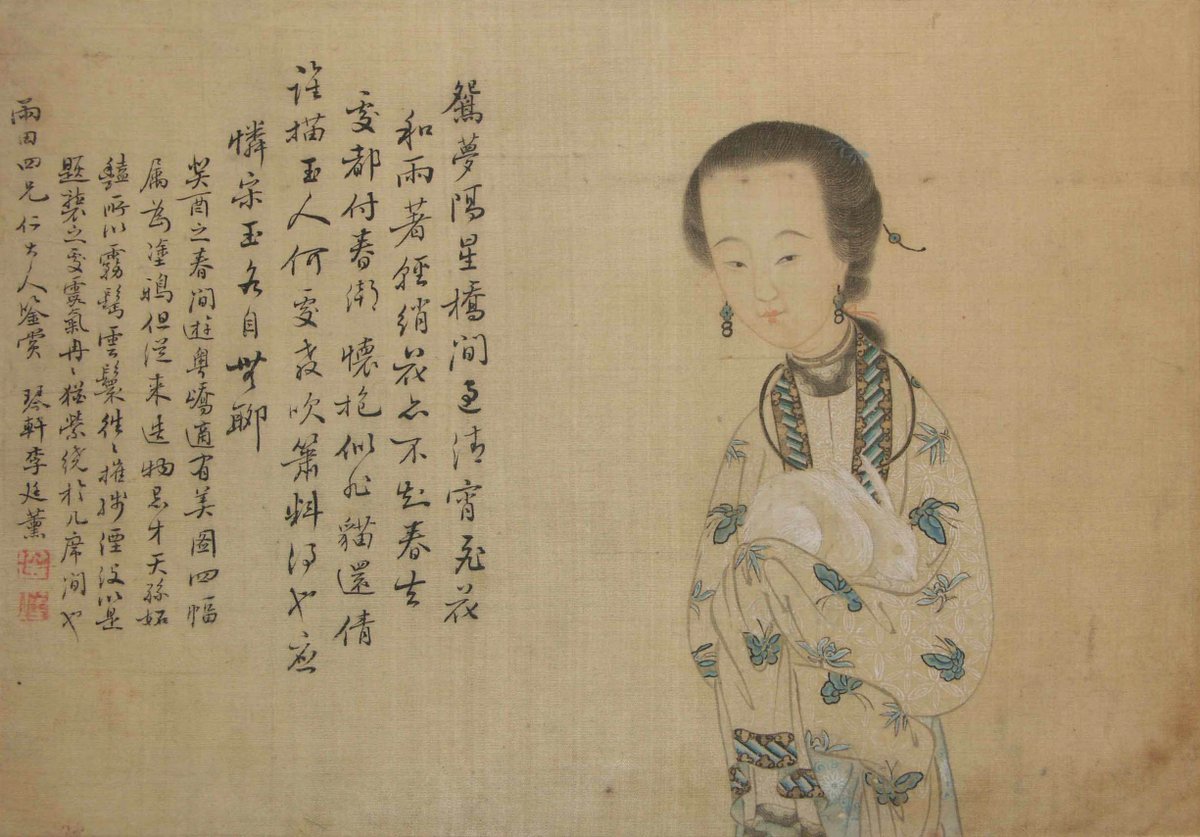 鴛夢隔星橋閒過清宵飛花
和雨著輕綃花亦不知春去
處都付春潮懷抱似貓還倩
誰描玉人何處教吹簫料得也應
憐宋玉各自無聊
癸酉之春間遊粵嶠適有美圖四幅
屬為塗鴉但從來造物忌才天孫妬
豔所以霧鬢雲鬟往往摧殘湮沒以是
題裝之處靈氣冉冉猶縈繞於几席間也
雨田四兄仁大人鑒賞 琴軒李廷薰